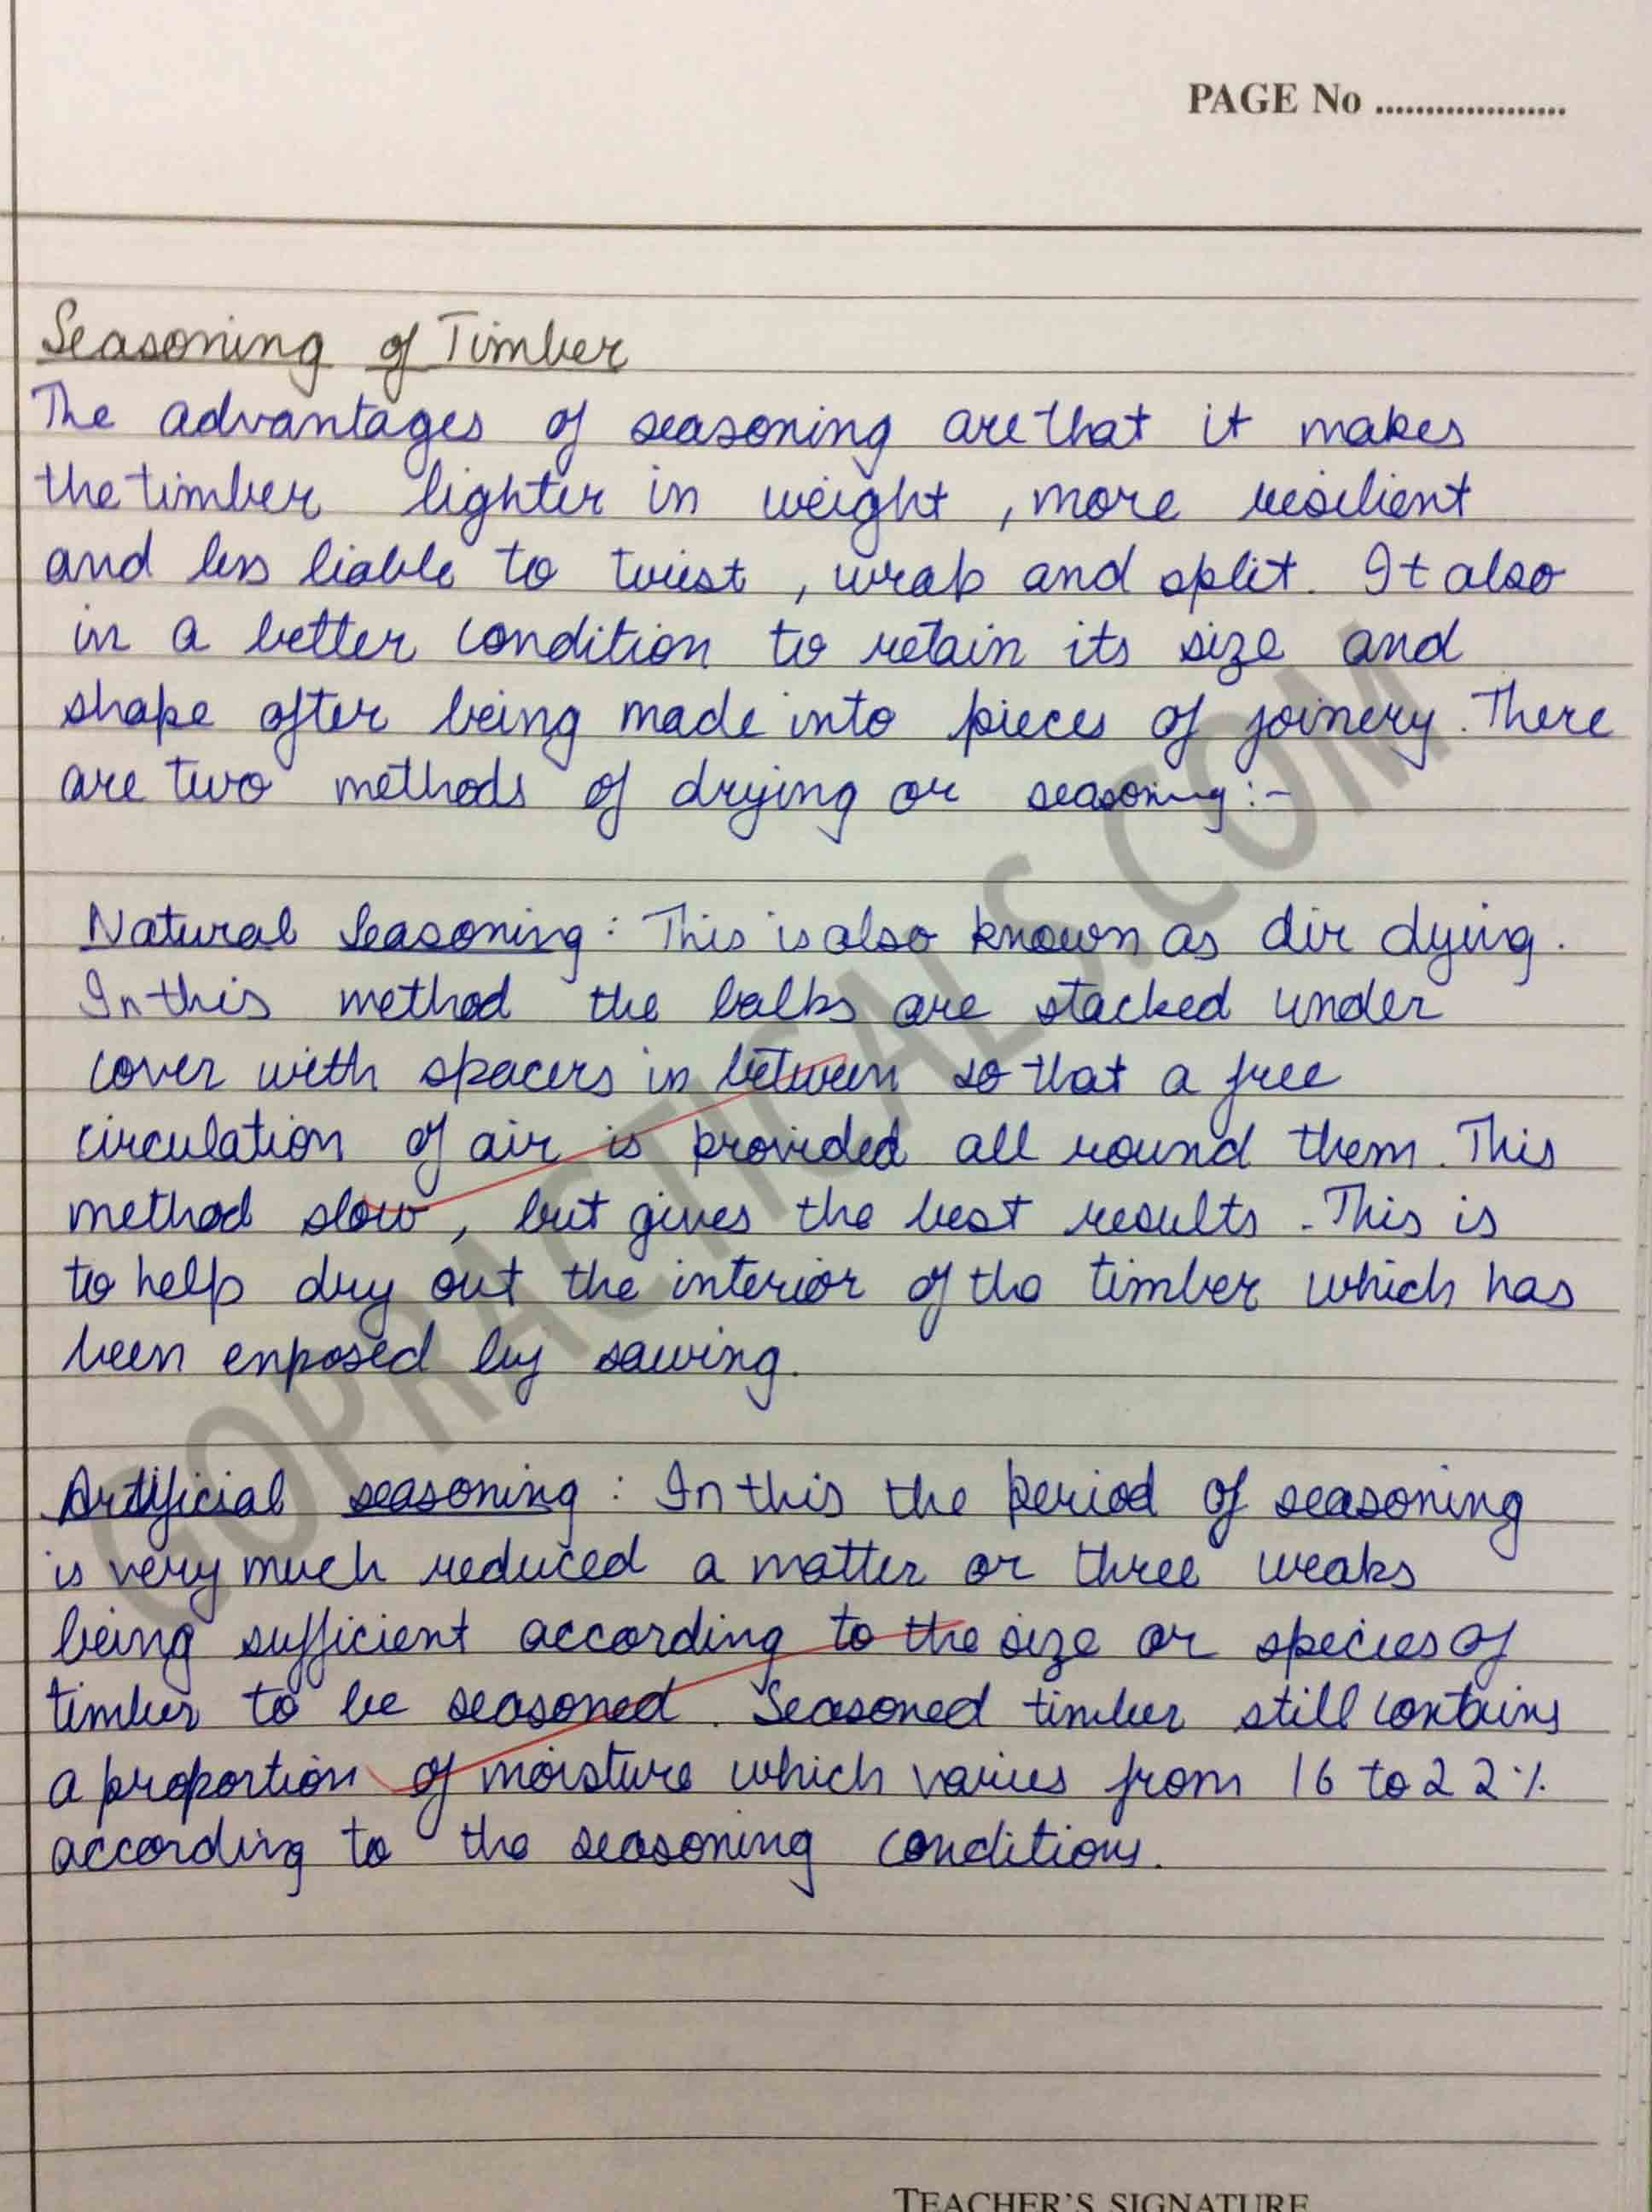 PAGE No ....................
Seasoning of Timber
The advantages of seasoning are that it makes
the timber lighter in weight , more resilient
and less liable to twist , wrap and split. It also
in a better condition to retain its size and
shape after being made into pieces of joinery. There
are two methods of drying or seasoning :-
Natural Seasoning : This is also known as dir dying.
In this method the balks are stacked under
cover with spacers in between so that a free
circulation of air is provided all round them. This
method slow, but gives the best results. This is
to help dry out the interior of the timber which has
been enposed by sawing.
Artificial seasoning : In this the period of seasoning
is very much reduced a matter or three weaks
being sufficient according to the size or species of
timber to be seasoned. Seasoned timber still contains
a proportion of moisture which varies from 16 to 22%
according to the seasoning conditions.
GOPRACTICALS.COM
TEACHER'S SIGNATURE